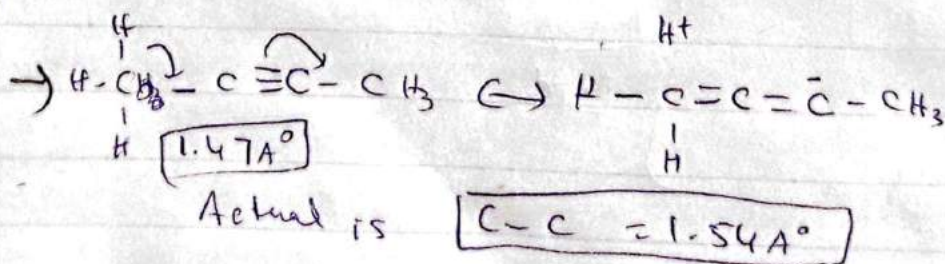 H H+
→ H-C-C≡C-CH3 ↔ H-C=C=C̄-CH3
H 1.47A° H
Actual is C-C = 1.54A°